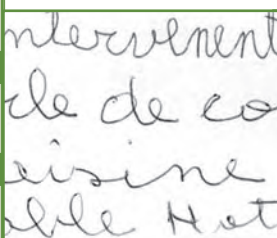 ntervenent
cle de co
uisine
able Hot